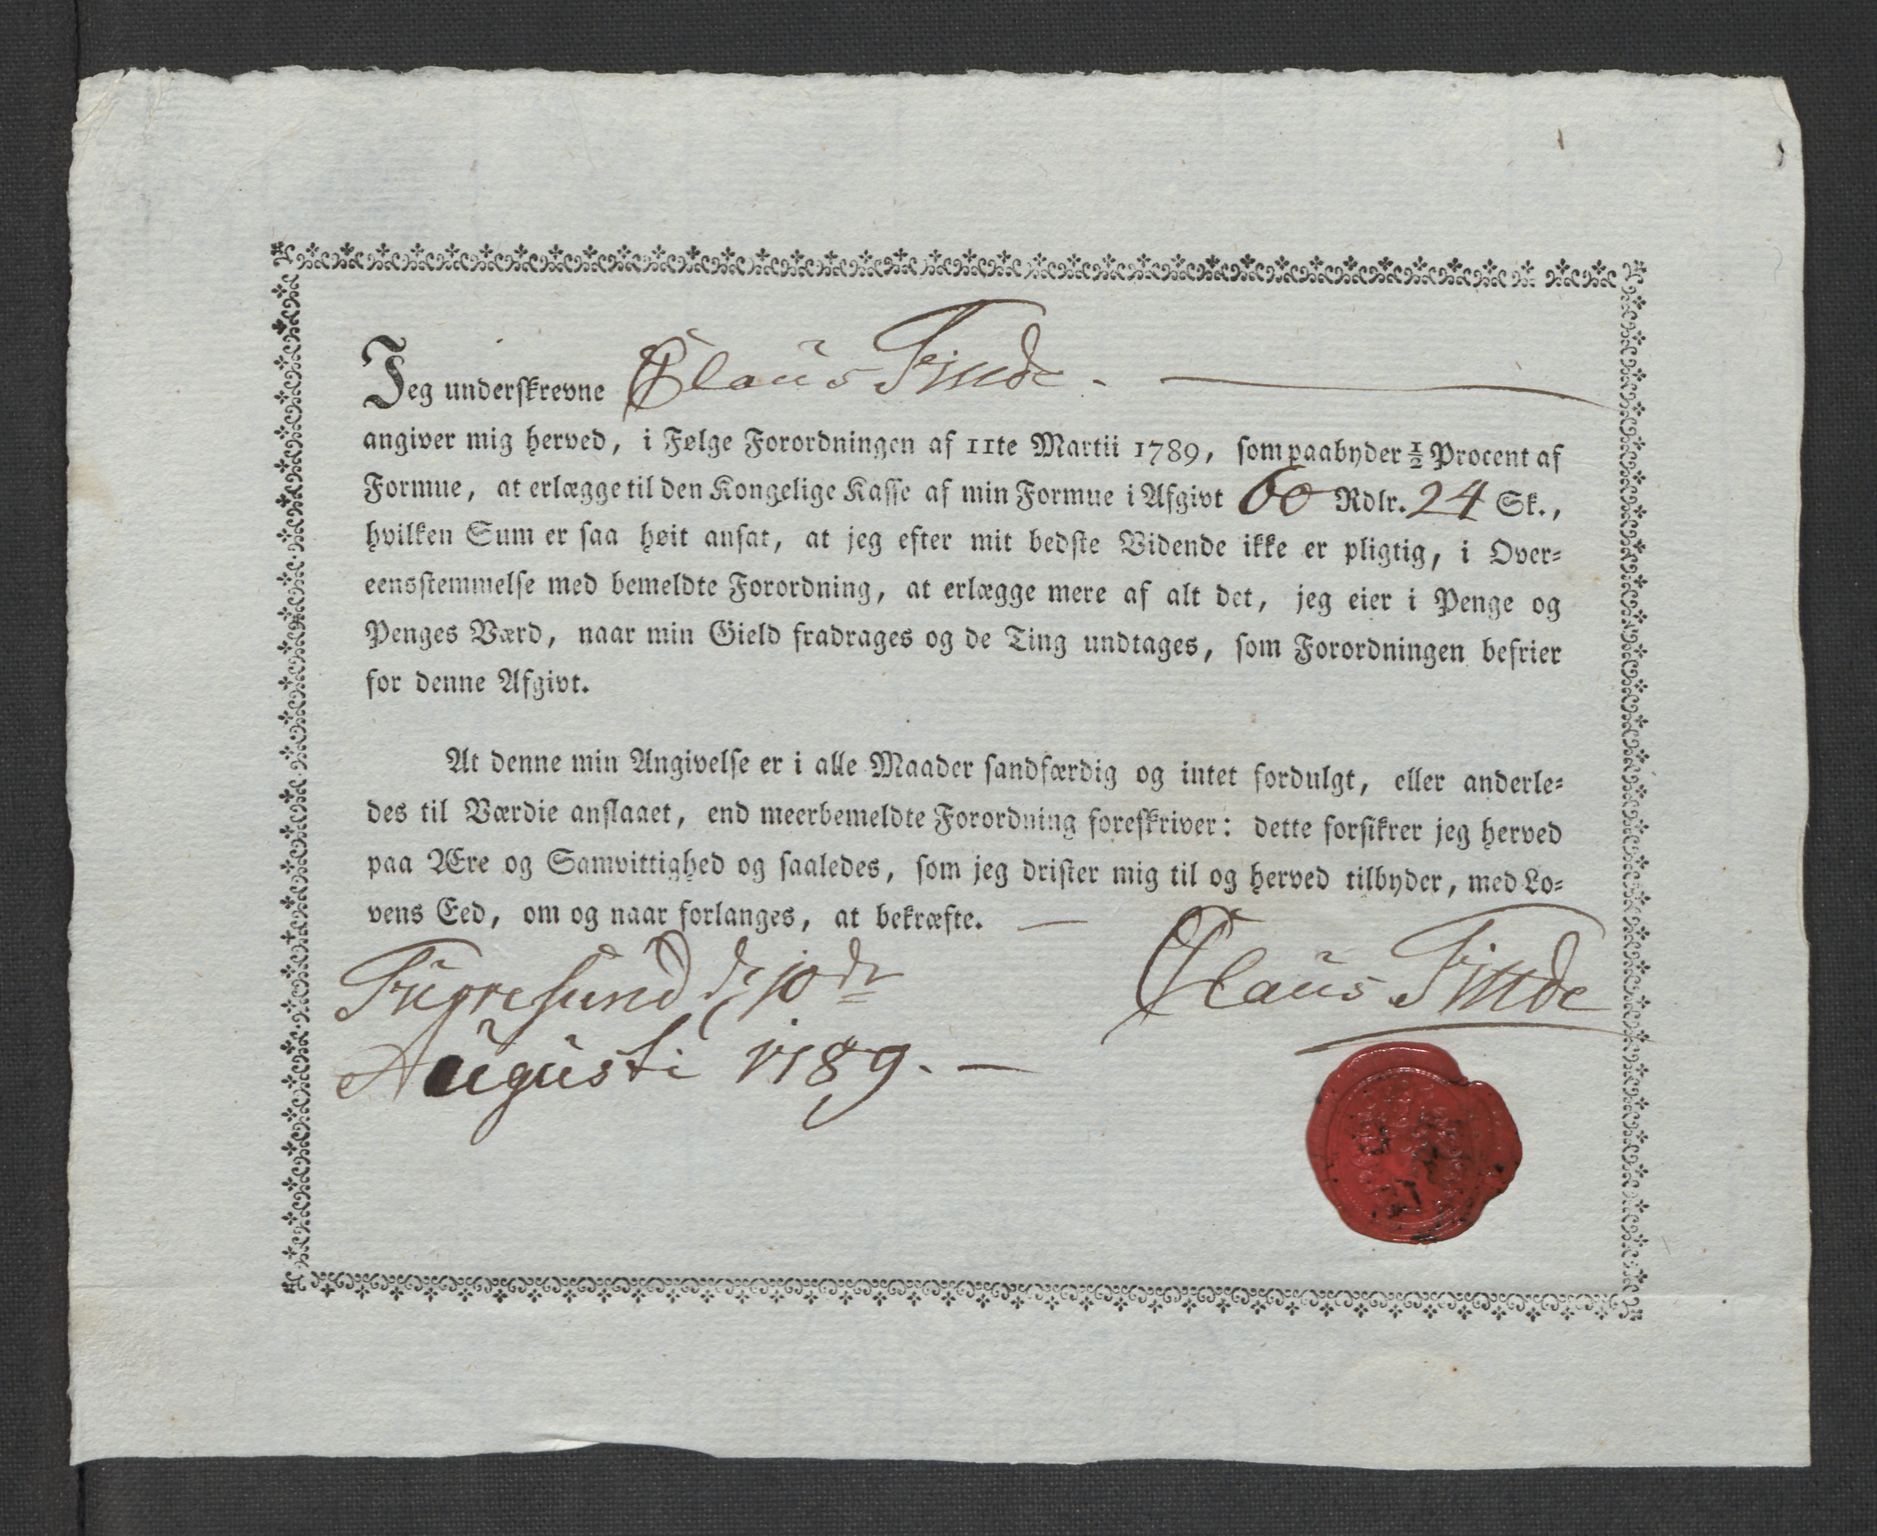 Jeg underskrevne Claus Finde. —
angiver mig herved, i Følge Forordningen af 11te Martii 1789, som paabyder ½ Procent af
Formue, at erlægge til den Kongelige Kasse af min Formue i Afgivt 60 Rdlr. 24 Sk.,
hvilken Sum er saa høit ansat, at jeg efter mit bedste Vidende ikke er pligtig, i Over-
eensstemmelse med bemeldte Forordning, at erlægge mere af alt det, jeg eier i Penge og
Penges Værd, naar min Gield fradrages og de Ting undtages, som Forordningen befrier
for denne Afgivt.
At denne min Angivelse er i alle Maader sandfærdig og intet fordulgt, eller anderle-
des til Værdie anslaaet, end meerbemeldte Forordning foreskriver: dette forsikrer jeg herved
paa Ære og Samvittighed og saaledes, som jeg drister mig til og herved tilbyder, med Lo-
vens Eed, om og naar forlanges, at bekræfte. —
Claus Finde
Fugresund d. 10de
Augusti 1789. —